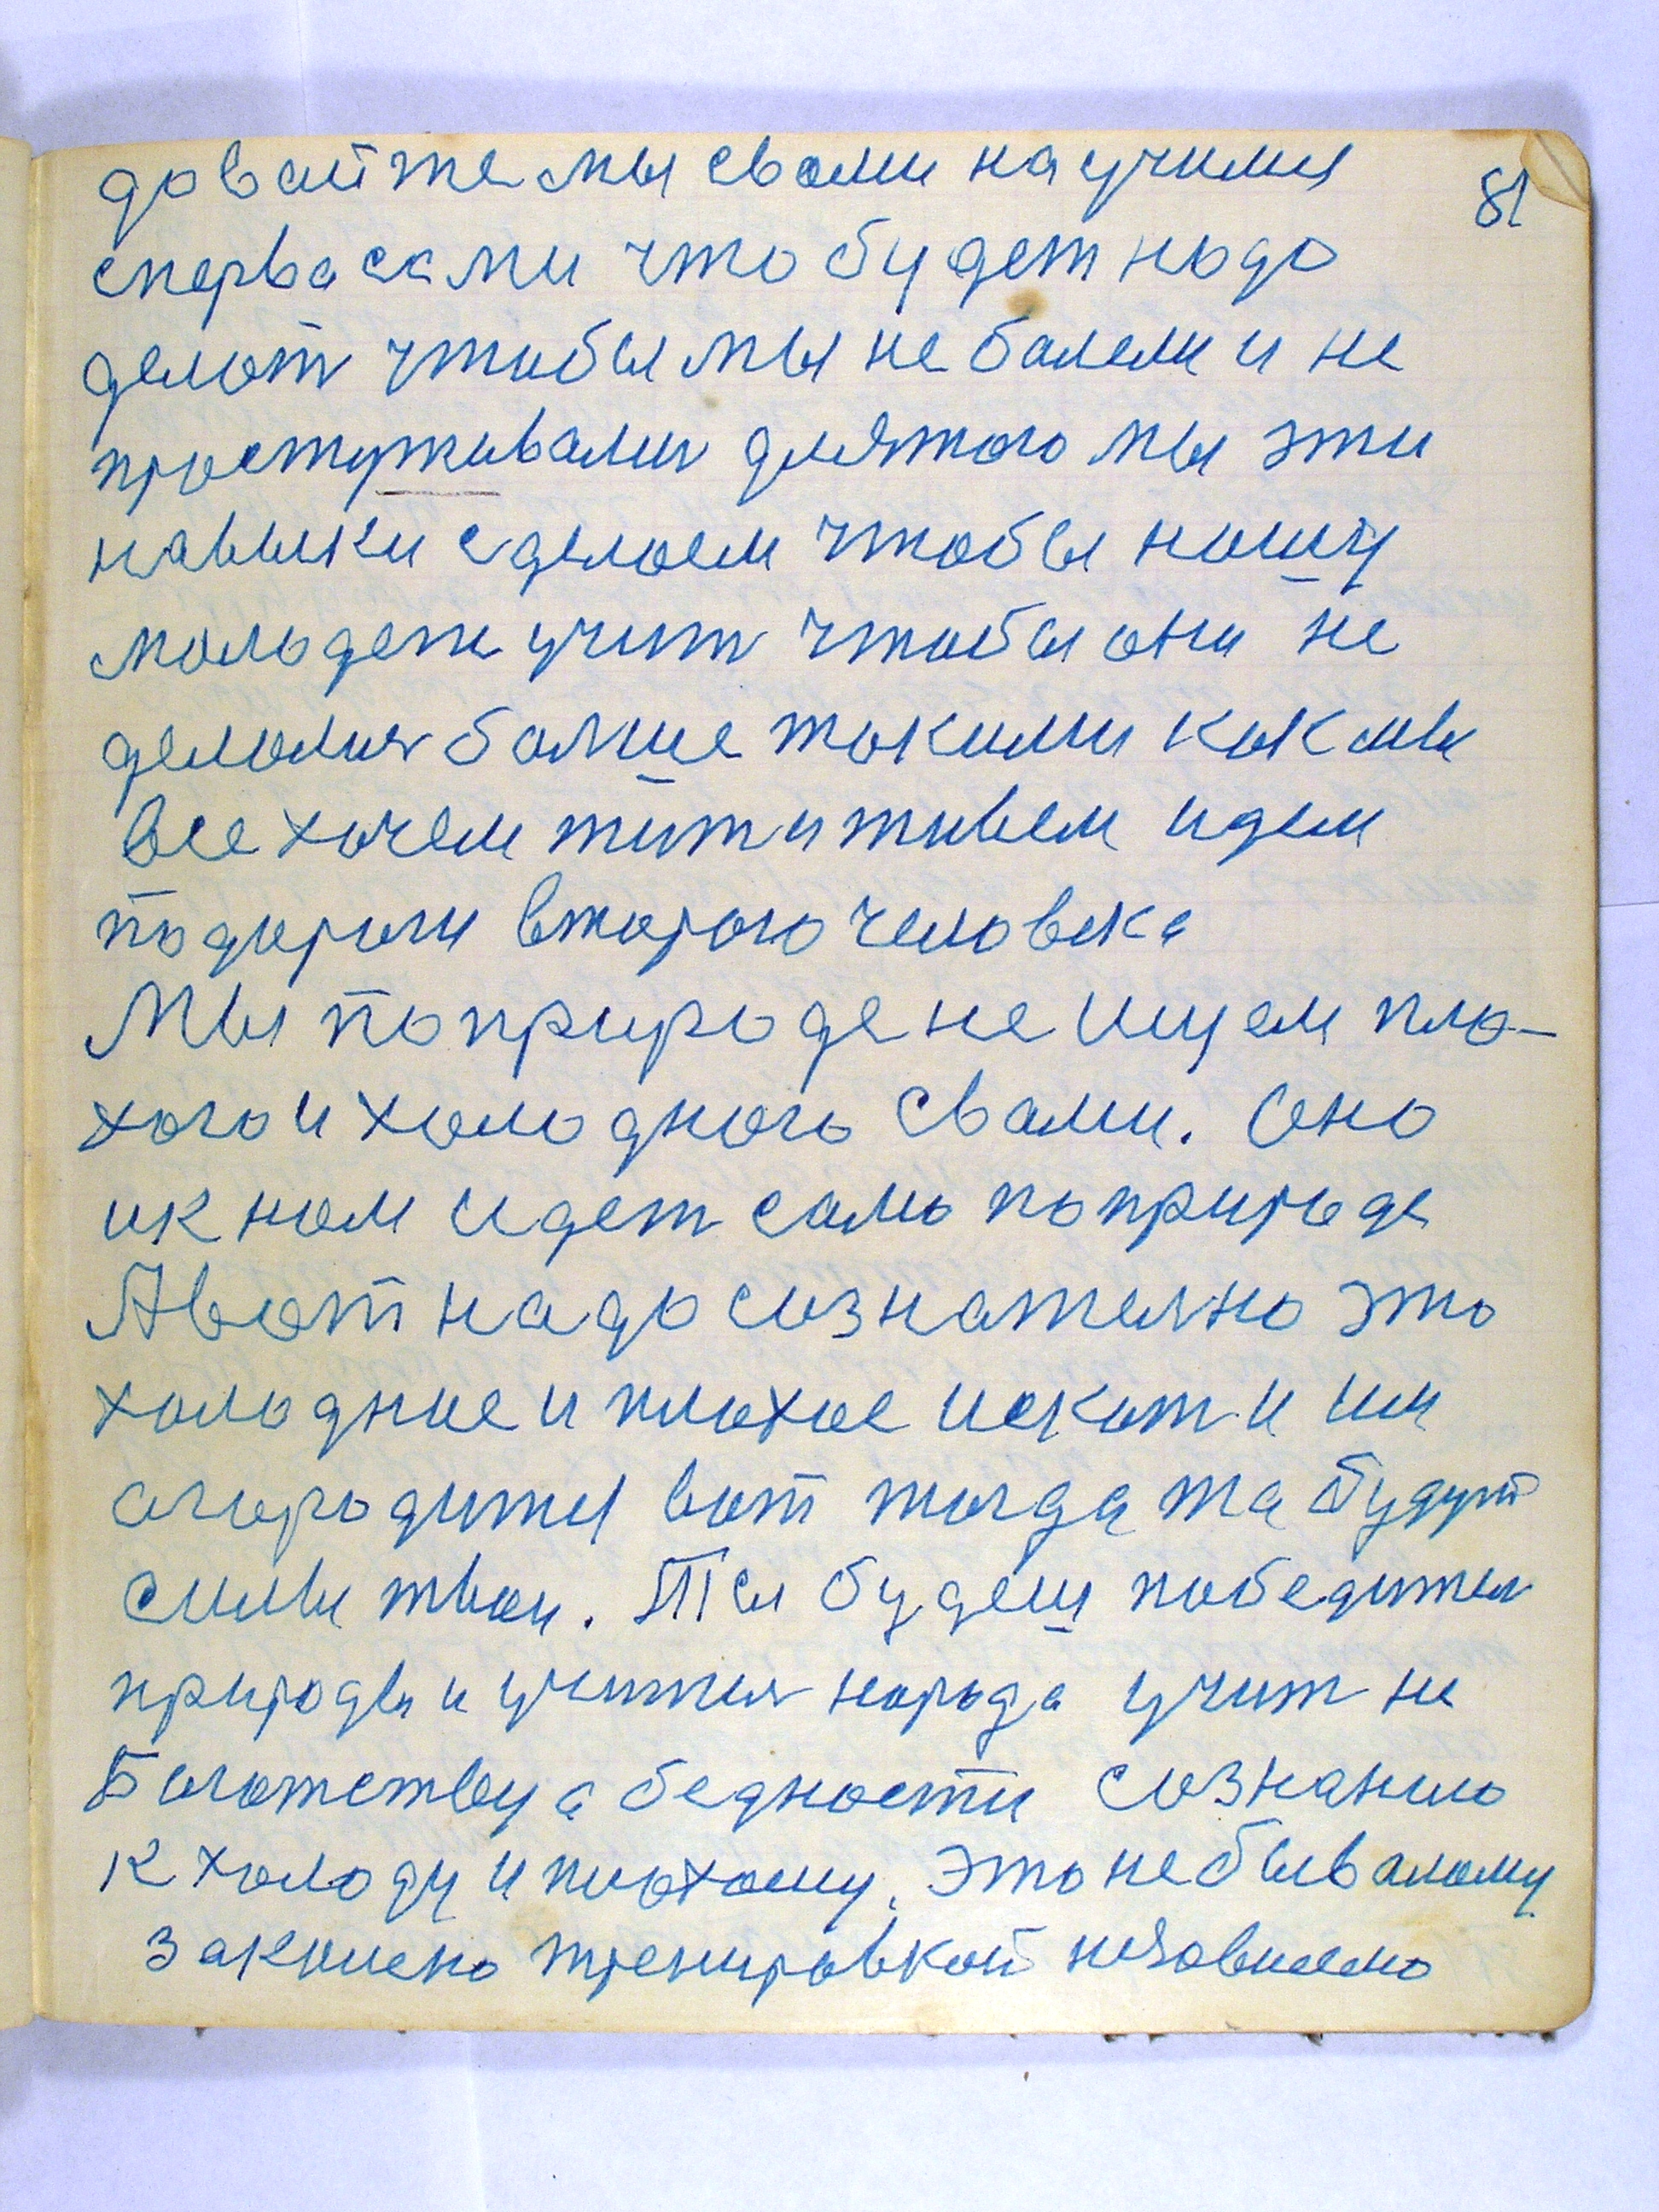 давайте мы свами научимя
сперва сами что будет надо
делат чтобы мы не болели и не
простуживалис длятого мы эти
навыки сделаем чтобы нашу
молодеж учит чтобы они не
делалис болше такими как мы
все хочем жит и живем идем
подороги второго человека
Мы поприроде не ищем пло-
хого и холодного свами. Оно
ик нам идет само поприроде
Авот надо сознателно это
холодное и плохое искат и им
огородитя вот тогда та будут
силы твои. Ты будеш победител
природы и учител народа учит не
Богатству а бедности сознанию
к холоду и плохому. Это небывалому
закалено тренировкой независемо
81